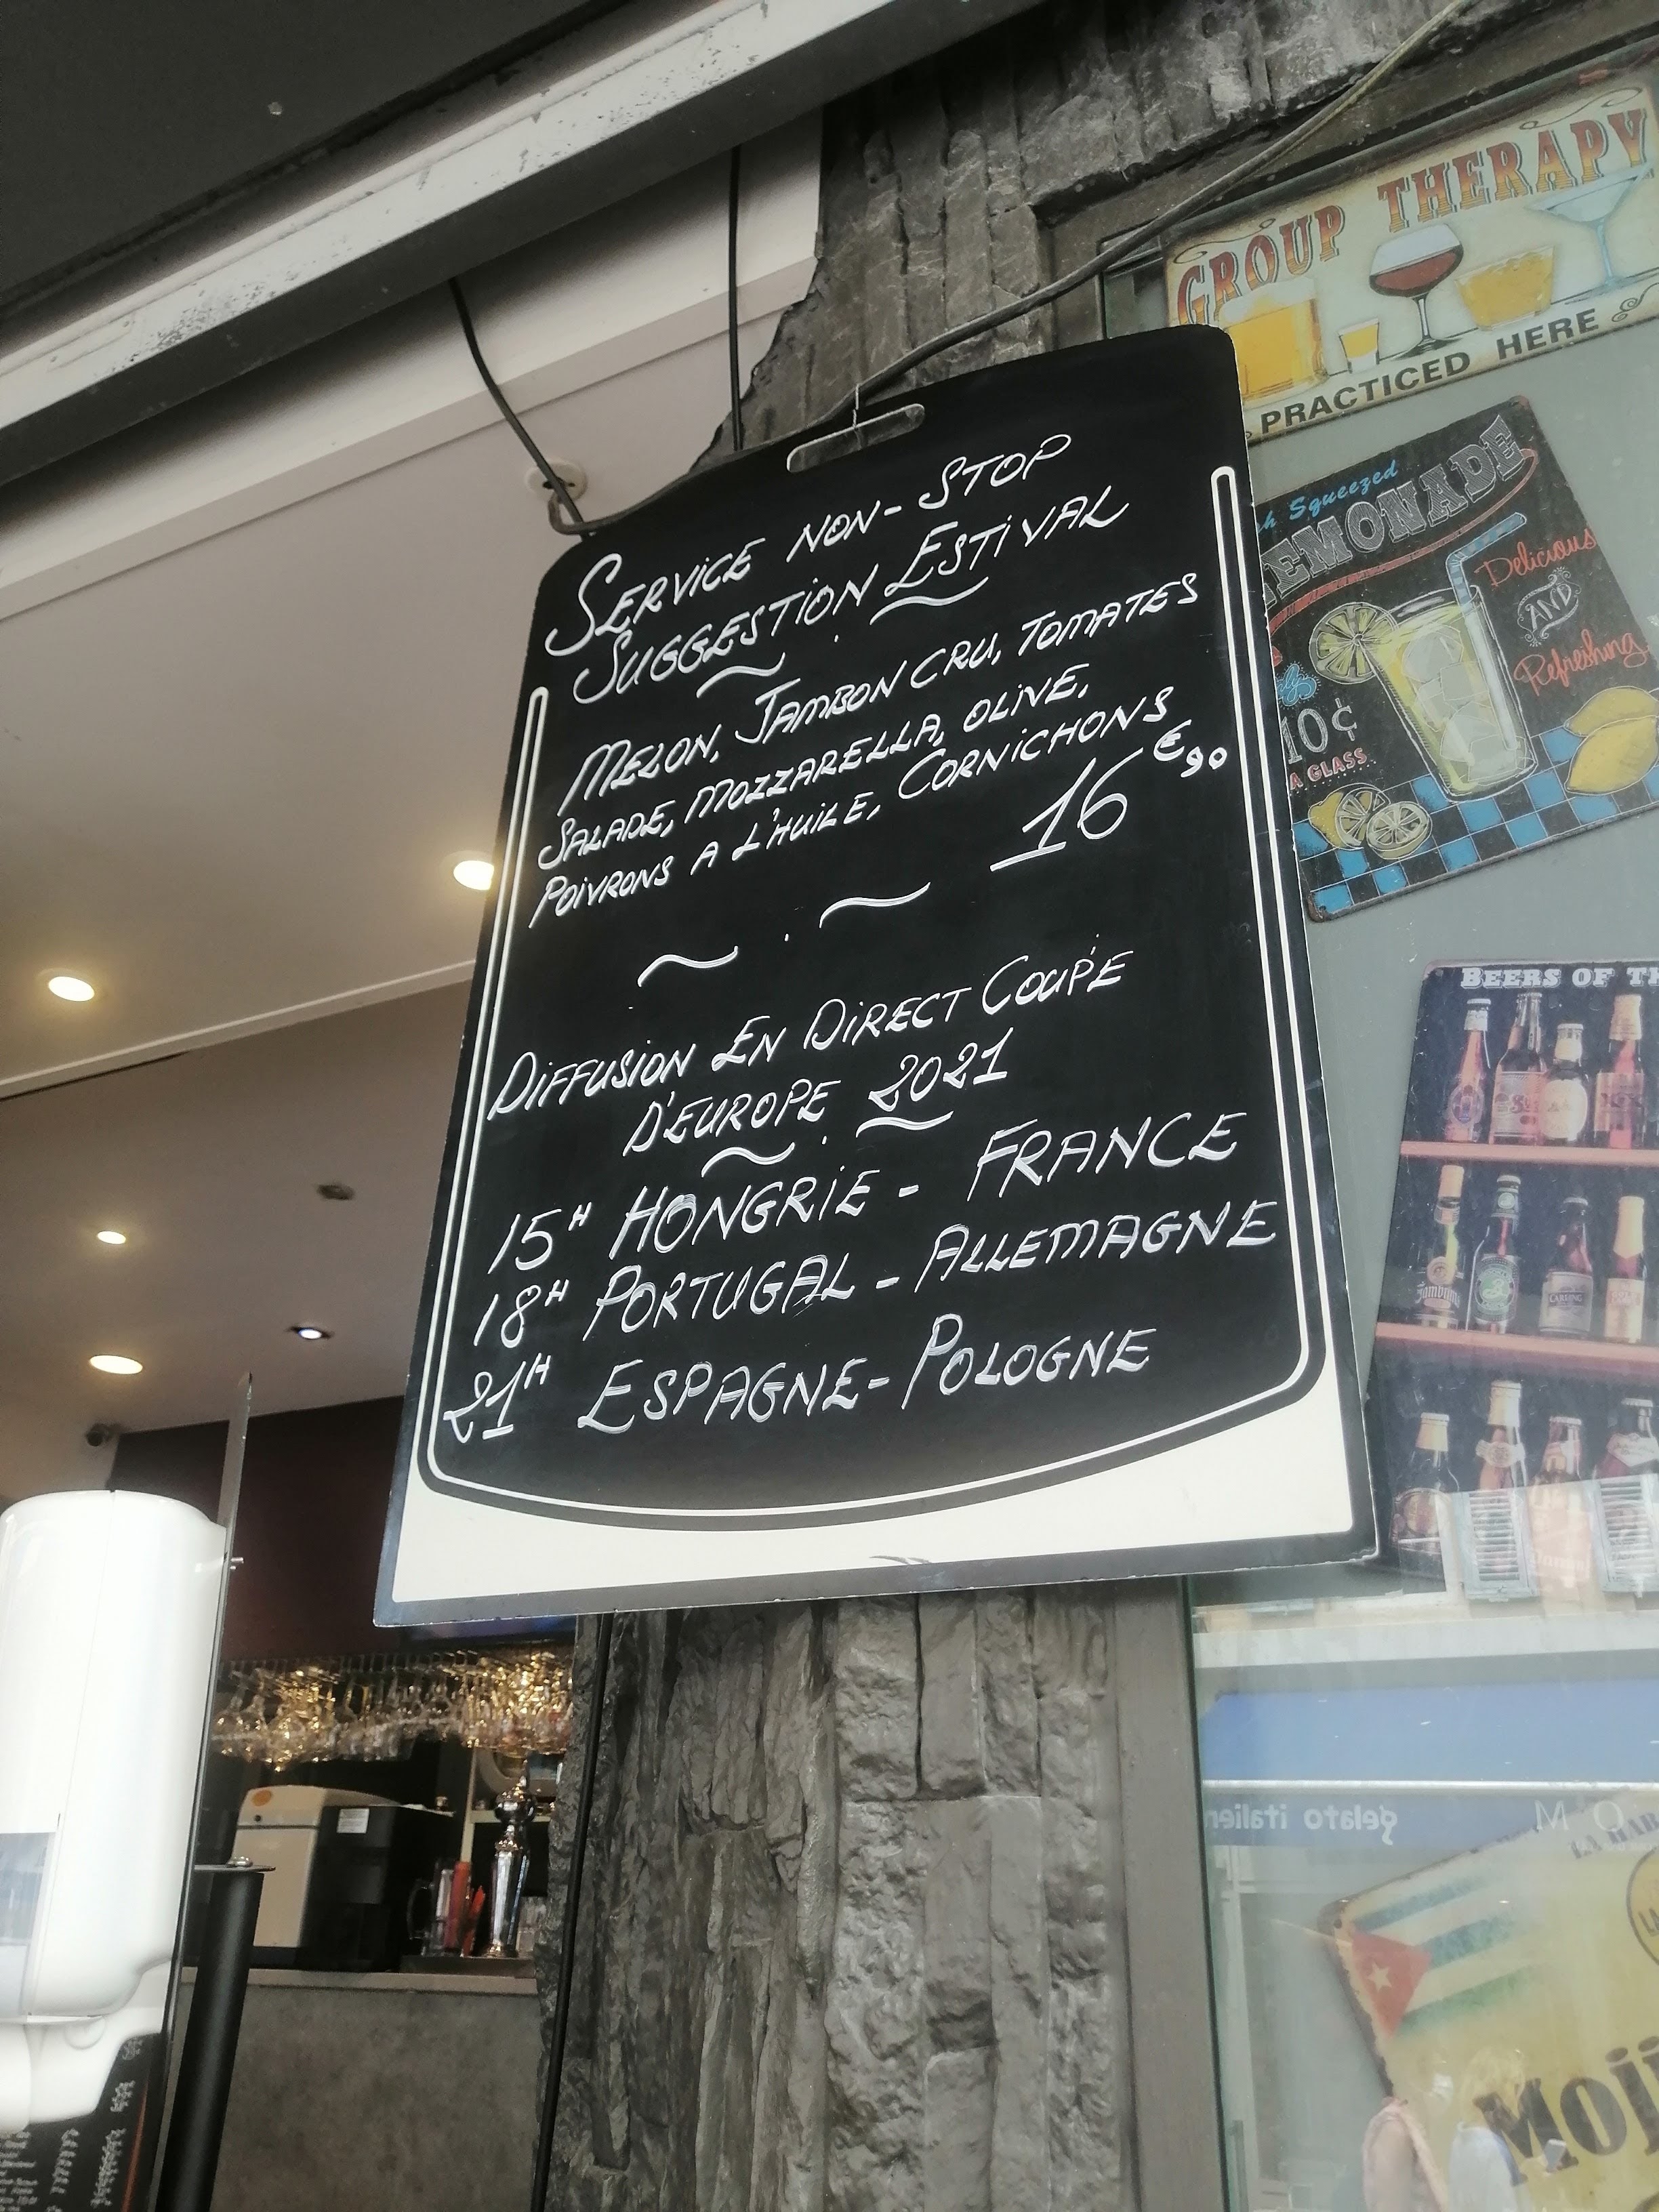 GROUP THERAPY
PRACTICED HERE
Squeezed
Delicious
AND
Refreshing
10¢
A GLASS
SERVICE NON-STOP
SUGGESTION ESTIVAL
MELON, JAMBON CRU, TOMATES
SALADE, MOZZARELLA, OLIVE,
POIVRONS A L'HUILE, CORNICHONS
16€90
DIFFUSION EN DIRECT COUPE
D'EUROPE 2021
15H HONGRIE - FRANCE
18H PORTUGAL - ALLEMAGNE
21H ESPAGNE - POLOGNE
BEERS OF
CARLING
gelato